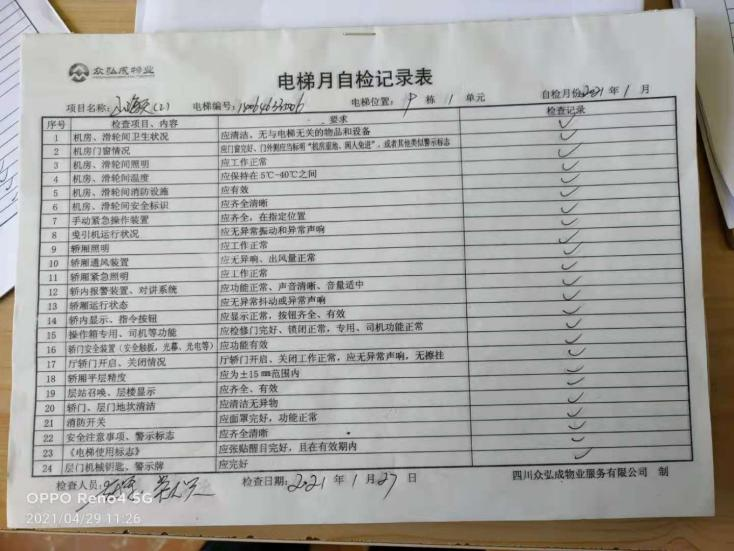 众弘成物业
电梯月自检记录表
项目名称: (2) 电梯编号: 电梯位置: 栋 1 单元 自检月份:2021 年 1 月
序号 检查项目、内容 要求 检查记录
1 机房、滑轮间卫生状况 应清洁、无与电梯无关的物品和设备 ✓
2 机房门窗情况 应门窗完好、门外侧应当标明"机房重地、闲人免进"，或者其他类似警示标志 ✓
3 机房、滑轮间照明 应工作正常 ✓
4 机房、滑轮间温度 应保持在5℃-40℃之间 ✓
5 机房、滑轮间消防设施 应有效 ✓
6 机房、滑轮间安全标识 应齐全清晰 ✓
7 手动紧急操作装置 应齐全，在指定位置 ✓
8 曳引机运行状况 应无异常振动和异常声响 ✓
9 轿厢照明 应工作正常 ✓
10 轿厢通风装置 应无异响、出风量正常 ✓
11 轿厢紧急照明 应工作正常 ✓
12 轿内报警装置、对讲系统 应功能正常、声音清晰、音量适中 ✓
13 轿厢运行状态 应无异常抖动或异常声响 ✓
14 轿内显示、指令按钮 应显示正常，按钮齐全、有效 ✓
15 操作箱专用、司机等功能 应检修门完好、锁闭正常，专用、司机功能正常 ✓
16 轿门安全装置（安全触板，光幕、光电等） 应功能有效 ✓
17 厅轿门开启、关闭情况 厅轿门开启、关闭工作正常，应无异常声响，无擦挂 ✓
18 轿厢平层精度 应为±15㎜范围内 ✓
19 层站召唤、层楼显示 应齐全、有效 ✓
20 轿门、层门地坎清洁 应清洁无异物 ✓
21 消防开关 应面罩完好，功能正常 ✓
22 安全注意事项、警示标志 应齐全清晰 ✓
23 《电梯使用标志》 应张贴醒目完好，且在有效期内 ✓
24 层门机械钥匙、警示牌 应完好 ✓
检查人员: 检查日期:2021 年 1 月 27 日 四川众弘成物业服务有限公司 制
OPPO Reno4 5G
2021/04/29 11:26